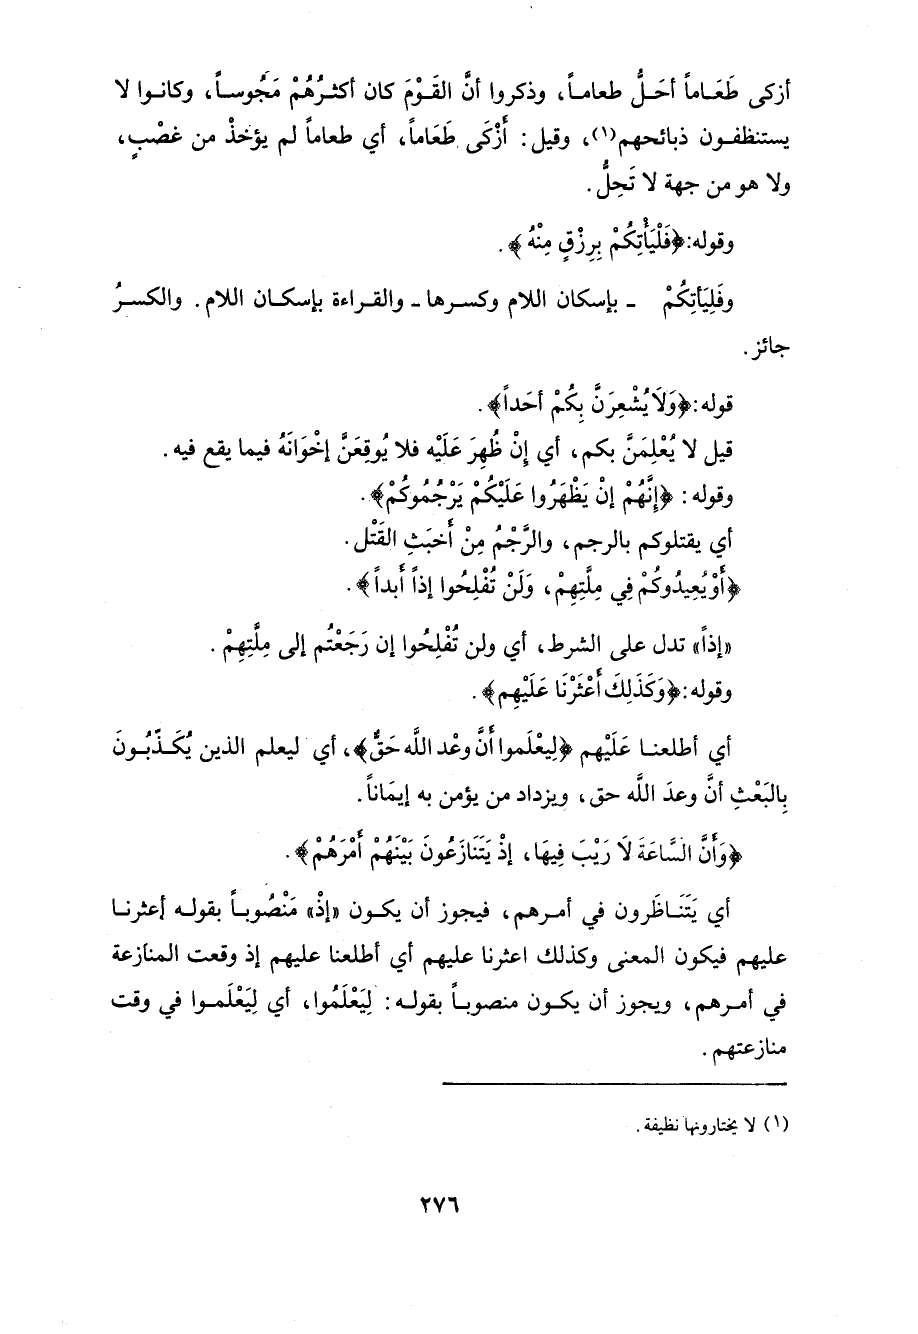 أزكى طَعَاماً أحَلُّ طعاماً، وذكروا أنَّ القَوْمَ كان أكثرُهُمْ مَجُوساً، وكانوا لا
يستنظفون ذبائحهم(١)، وقيل: أَزْكَى طَعَاماً، أي طعاماً لم يؤخذْ من غصْبٍ،
ولا هو من جهة لا تَحِلُّ.
وقوله: ﴿فَلْيَأْتِكُمْ بِرِزْقٍ مِنْهُ﴾.
وفَلِيَأتِكُمْ - بإسكان اللام وكسرها - والقراءة بإسكان اللام. والكسرُ
جائز.
قوله: ﴿وَلَا يُشْعِرَنَّ بِكُمْ أحَداً﴾.
قيل لا يُعْلِمَنَّ بكم، أي إنْ ظُهِرَ عَلَيْه فلا يُوقِعَنَّ إخْوَانَهُ فيما يقع فيه.
وقوله: ﴿إنَّهُمْ إنْ يَظْهَرُوا عَلَيْكُمْ يَرْجُمُوكُمْ﴾.
أي يقتلوكم بالرجم، والرَّجْمُ مِنْ أَخبَثِ القَتْل.
﴿أَوْ يُعِيدُوكُمْ فِي مِلَّتِهِمْ، وَلَنْ تُفْلِحُوا إذاً أَبداً﴾.
«إذاً» تدل على الشرط، أي ولن تُفْلِحُوا إن رَجَعْتُم إلى مِلَّتِهِمْ.
وقوله: ﴿وَكَذَلِكَ أَعْثَرْنَا عَلَيْهِم﴾.
أي أطلعنا عَلَيْهم ﴿لِيعْلَموا أَنَّ وعْد اللَّه حَقٌّ﴾، أي ليعلم الذين يُكَذّبُونَ
بِالبَعْثِ أنَّ وعدَ اللَّه حق، ويزداد من يؤمن به إيمَاناً.
﴿وَأَنَّ السَّاعَةَ لَا رَيْبَ فِيهَا، إذْ يَتَنَازَعُونَ بَيْنَهُمْ أَمْرَهُمْ﴾.
أي يَتَنَاظَرون في أمرهم، فيجوز أن يكون «إذْ» مَنْصُوباً بقوله أعثرنا
عليهم فيكون المعنى وكذلك اعثرنا عليهم أي أطلعنا عليهم إذ وقعت المنازعة
في أمرهم، ويجوز أن يكون منصوباً بقوله: لِيَعْلَمُوا، أي لِيَعْلَموا في وقت
منازعتهم.
(١) لا يختارونها نظيفة.
٢٧٦